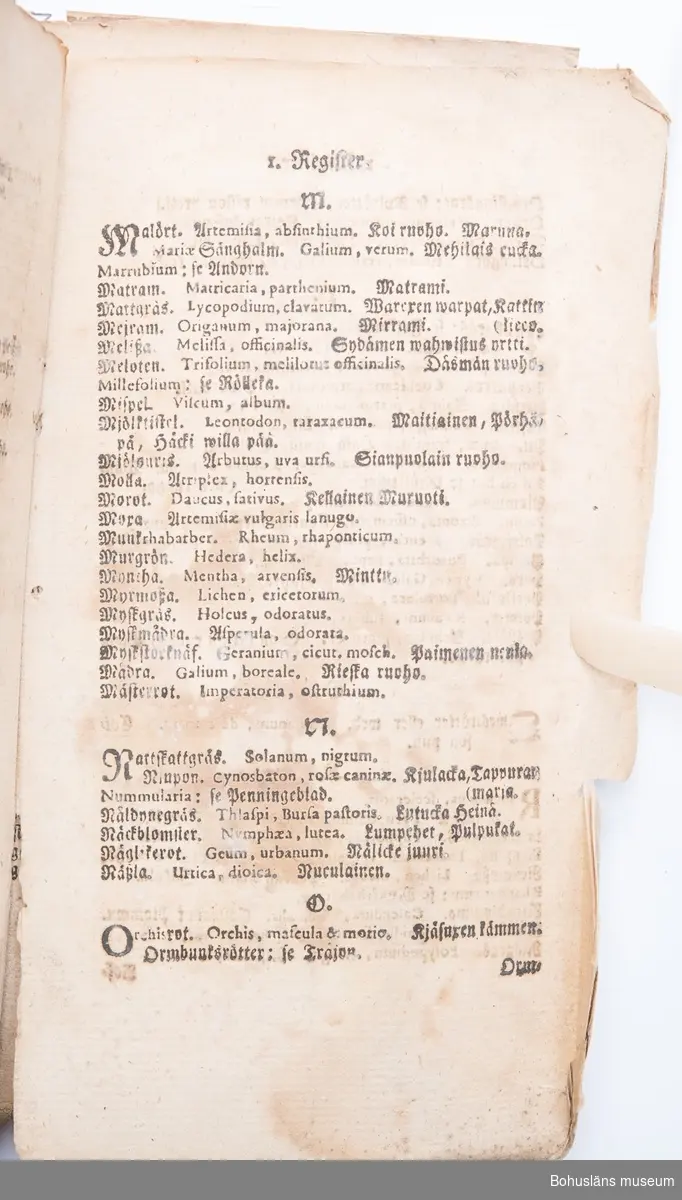 1. Register.
M.
Malört. Artemisia, absinthium. Koi ruoho. Maruna.
Mariæ Sänghalm. Galium, verum. Mehiläis cucka.
Marrubium: se Andorn.
Matram. Matricaria, parthenium. Matrami.
Mattgräs. Lycopodium, clavatum. Warexen warpat, Kattin
Mejram. Origanum, majorana. Mirrami. (lieco.
Melißa. Melissa, officinalis. Sydämen wahwistus yrtti.
Meloten. Trifolium, melilotus officinalis. Däsmän ruoho.
Millefolium: se Rölleka.
Mispel. Viscum, album.
Mjölktistel. Leontodon, taraxacum. Maitiainen, Pörhä-
pä, Häcki willa pää.
Mjölonris. Arbutus, uva ursi. Sianpuolain ruoho.
Molla. Atriplex, hortensis.
Morot. Daucus, sativus. Kellainen Muruoti.
Moxa. Artemisiæ vulgaris lanugo.
Munkrhabarber. Rheum, rhaponticum.
Murgrön. Hedera, helix.
Myntha. Mentha, arvensis. Minttu.
Myrmoßa. Lichen, ericetorum.
Myskgräs. Holcus, odoratus.
Myskmådra. Asperula, odorata.
Myskstorknäf. Geranium, cicut. mosch. Paimenen neula.
Mådra. Galium, boreale. Rieska ruoho.
Mästerrot. Imperatoria, ostruthium.
N.
Nattskattgräs. Solanum, nigrum.
Niupon. Cynosbaton, rosæ caninæ. Kjulacka, Tappuran
Nummularia: se Penningeblad. (marja.
Näldonegräs. Thlaspi, Bursa pastoris. Lytucka Heinä.
Näckblommer. Nymphæa, lutea. Lumpehet, Pulpukat.
Näglikerot. Geum, urbanum. Nälicke juuri.
Näßla. Urtica, dioica. Nuculainen.
O.
Orchisrot. Orchis, mascula & morio. Kjäsuxen kämmen.
Ormbunksrötter: se Träjon.
Orm-
Bohusläns museum